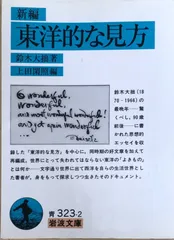 新編
東洋的な見方
鈴木大拙著
上田閑照編
O wonderful,
wonderful,
and most wonderful wonderful!
and yet again wonderful
鈴木大拙(18
70-1966)の
最晩年――驚
くべし,90歳
前後――に書
かれた思想的
エッセイを収
録した『東洋的な見方』を中心に,同時期の好文章を加えて
再編成.世界にとって失われてはならない東洋の「よきもの」
とは何か――文字通り世界に出て西洋を自らの生活世界とし
た著者が,身をもって探求しつつ生きたそのドキュメント.
青
323-2
岩波文庫